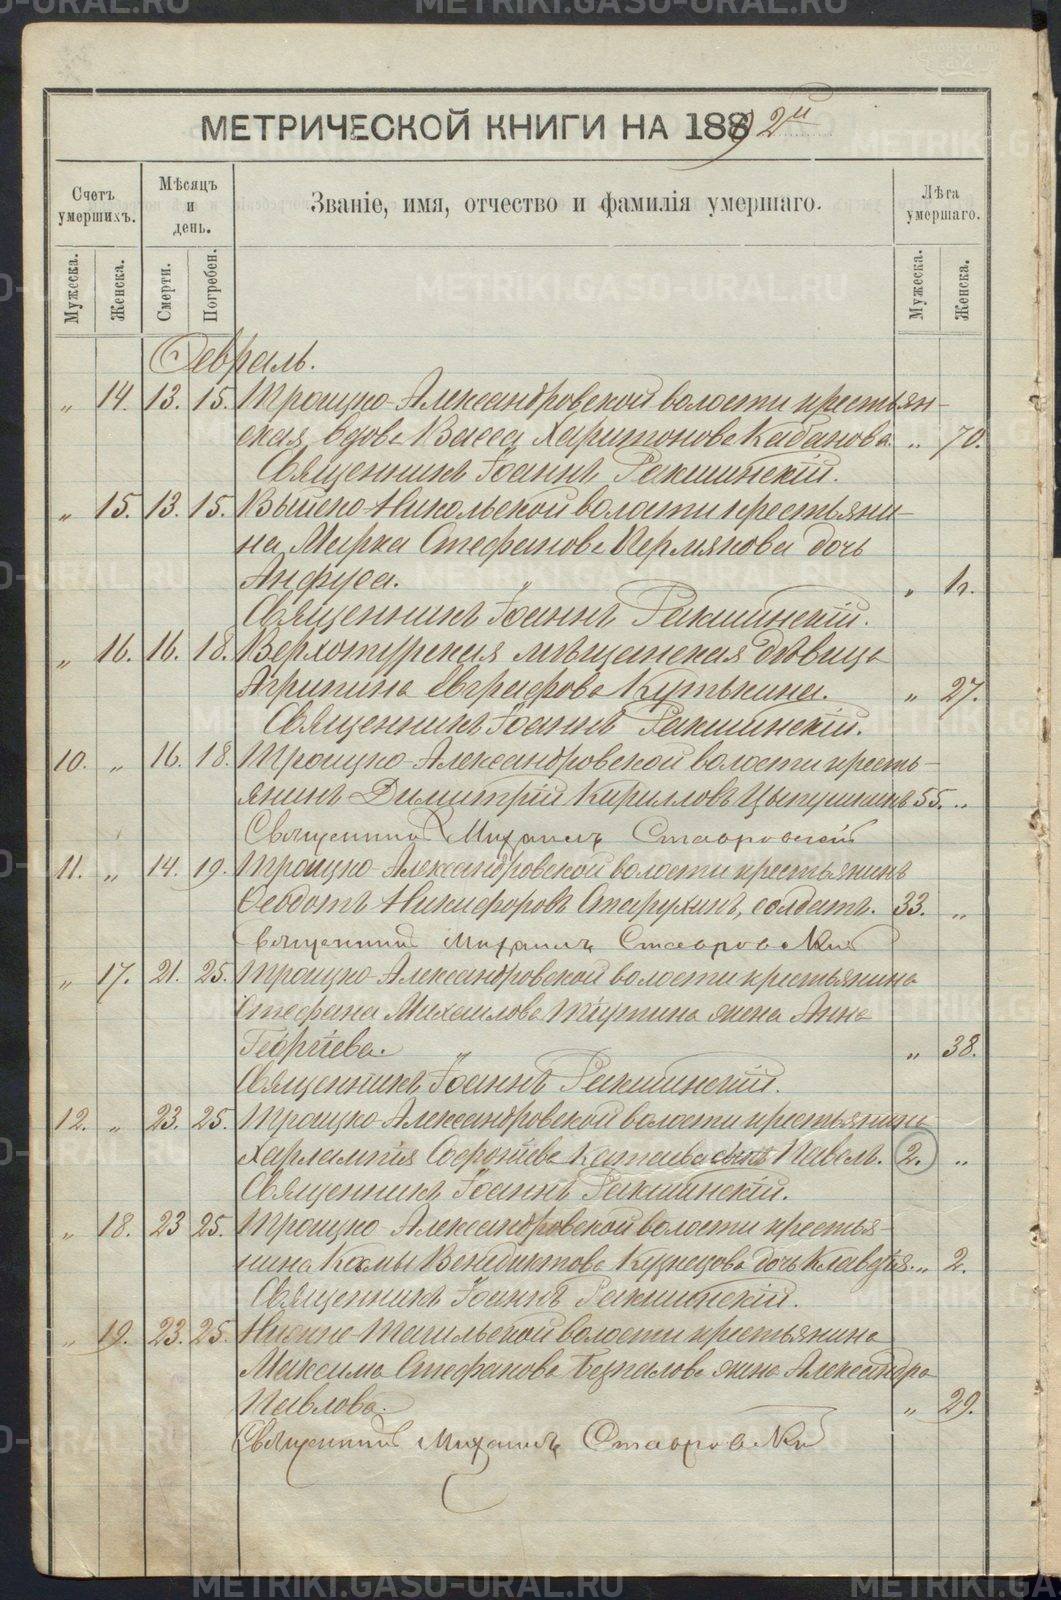 МЕТРИЧЕСКОЙ КНИГИ НА 1892й
Счетъ умершихъ.
Мѣсяцъ и день.
Званіе, имя, отчество и фамилія умершаго.
Лѣта умершаго.
Мужеска.
Женска.
Смерти.
Погребен.
Мужеска.
Женска.
Февраль.
„ 14. 13. 15. Троицко-Александровской волости крестьян-
ская вдова Васса Харитонова Кабанова. „ 70.
Священникъ Іоаннъ Ракшинскій.
„ 15. 13. 15. Выйско-Никольской волости крестьяни-
на Марка Стефанова Пермякова дочь
Анфуса. „
Священникъ Іоаннъ Ракшинскій.
„ 16. 16. 18. Верхотурская мѣщанская дѣвица
Агрипина Евграфова Кутькина. „ 27.
Священникъ Іоаннъ Ракшинскій.
10. „ 16. 18. Троицко-Александровской волости кресть-
янинъ Димитрій Кирилловъ Цыпушкинъ 55. „
Священникъ Михаилъ Ставровскій
11. „ 14. 19. Троицко-Александровской волости крестьянинъ
Ѳеодотъ Никифоровъ Старухинъ, солдатъ. 33. „
Священникъ Михаилъ Ставровскій
„ 17. 21. 25. Троицко-Александровской волости крестьянина
Стефана Михаилова Тіутина жена Анна
Георгіева. „ 38.
Священникъ Іоаннъ Ракшинскій.
12. „ 23. 25. Троицко-Александровской волости крестьянина
Харлампія Софоніева Катаева сынъ Павелъ. 2. „
Священникъ Іоаннъ Ракшинскій.
„ 18. 23 25. Троицко-Александровской волости крестья-
нина Козмы Венедиктова Кузнецова дочь Клавдія. „ 2.
Священникъ Іоаннъ Ракшинскій.
„ 19. 23. 25. Нижне-Тагильской волости крестьянина
Максима Стефанова Безпалова жена Александра
Павлова. „ 29.
Священникъ Михаилъ Ставровскій
METRIKI.GASO-URAL.RU